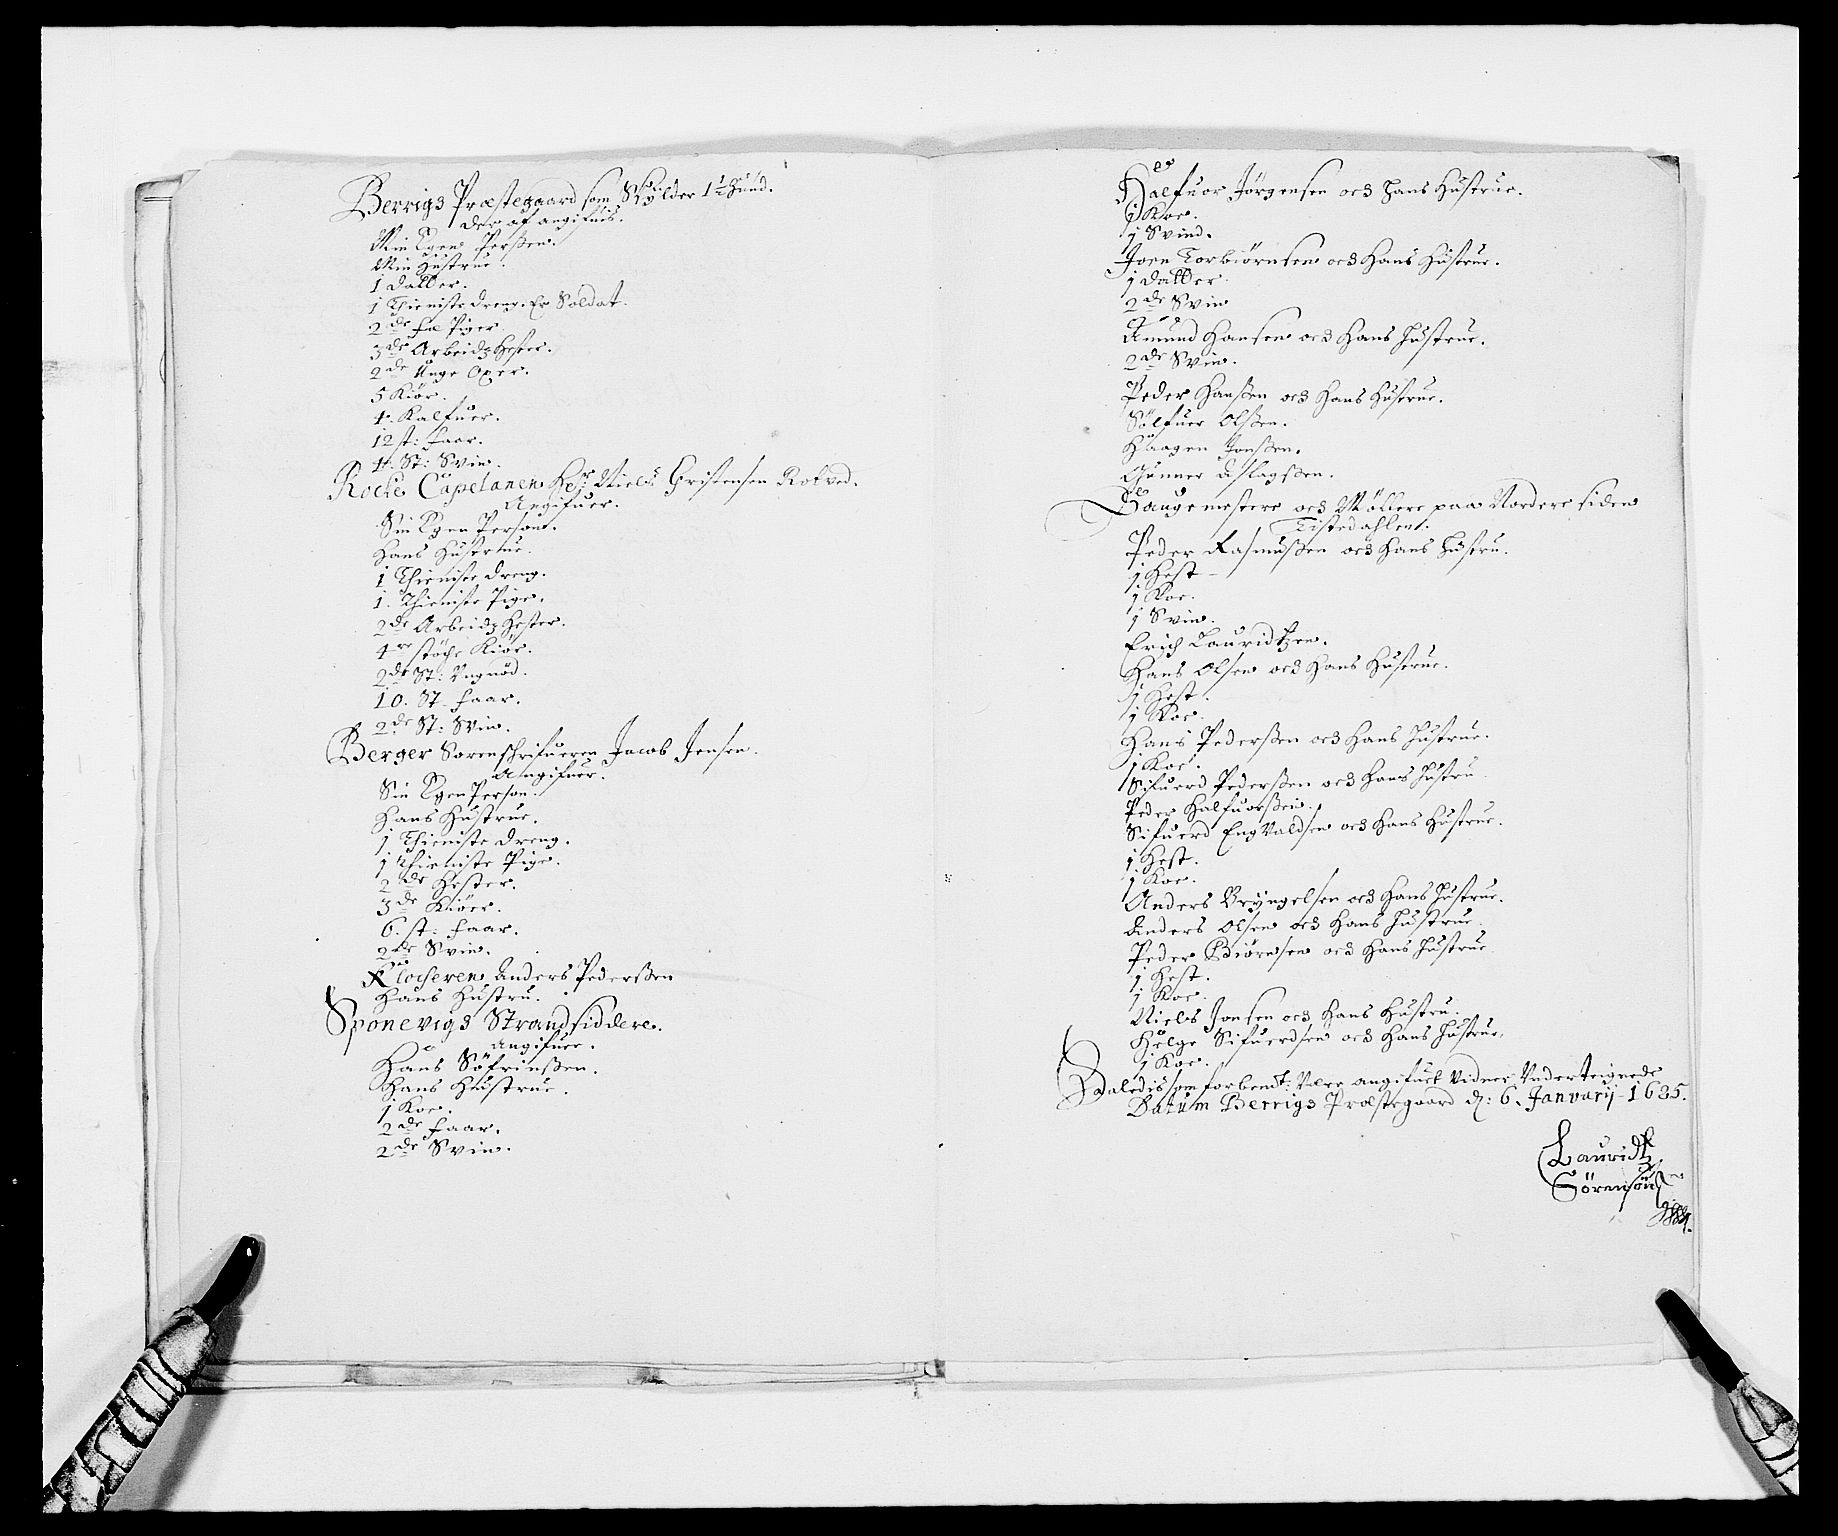 Berrigs Præstegaard som Skylder 1½ Hund.
der af angifuis.
Min Egen Perßon.
Min Hustrue.
1 Datter.
1 Thieniste dreng. Er Soldat.
2de fæ Piger
3de Arbeidz Hester.
2de Unge Oxer.
5 Kiör.
4. Kalfuer.
12 st: faar.
4. St: Svin.
Rocke Capelanen Her Niels Christensen Rokved.
Angifuer.
Sin Egen Person.
Hans Hustrue.
1 Thieniste dreng.
1. Thieniste Pige.
2de Arbeidz Hester.
4re støche Kiör.
2de St: Ungnöd.
10. St. faar.
2de St: Svin.
Berger Sorenschrifueren Jacob Jensen.
Angifuer.
Sin Egen Person.
Hans Hustrue.
1 Thieniste dreng.
1 Thieniste Pige.
2de Hester.
3de Kiöer.
6. st: faar.
2de Svin.
Klocheren Anders Pederßen
Hans Hustru.
Sponevigs Strandsiddere.
angifuer.
Hans Söfrinßen.
Hans Hustrue.
1 Koe.
2de faar.
2de Svin.
Halfuor Jörgensen och Hans Hustrue.
1 Koe.
1 Svind.
Joen Torbiörnsen och Hans Hustrue.
1 datter.
2de Svin
Amund Hansen och Hans Hustrue.
2de Svin.
Peder Hanßen och Hans Hustrue.
Sölfuer Olßen.
Haagen Jonßen.
Gunner Aslagßen.
Saugemestere och Möllere paa Nordere siden
Tistedahlen.
Peder Rasmußen och Hans Hustru.
1 Hest
1 Koe.
1 Svin.
Erich Lauridtzen.
Hans Olsen och Hans Hustrue.
1 Hest.
1 Koe.
Hans Pederßen och Hans Hustrue.
1 Koe.
Sifuerd Pederßen och Hans Hustru
Peder Halfuorßen.
Sifuerd EngValdsen och Hans Hustrue.
1 Hest.
1 Koe.
Anders Bryngelsen och Hans Hustrue.
Anders Olsen och Hans Hustrue
Peder Biörnsen och Hans Hustrue
1 Hest.
1 Koe.
Niels Jonsen och Hans Hustru.
Helge Sifuerdsen och Hans Hustrue,
1 Koe.
Saledis som forbemt: Vere angifuet Vidner Underteignede
Datum Berrigs Præstegaard d: 6. January 1685.
Lauridtz
Sörensön